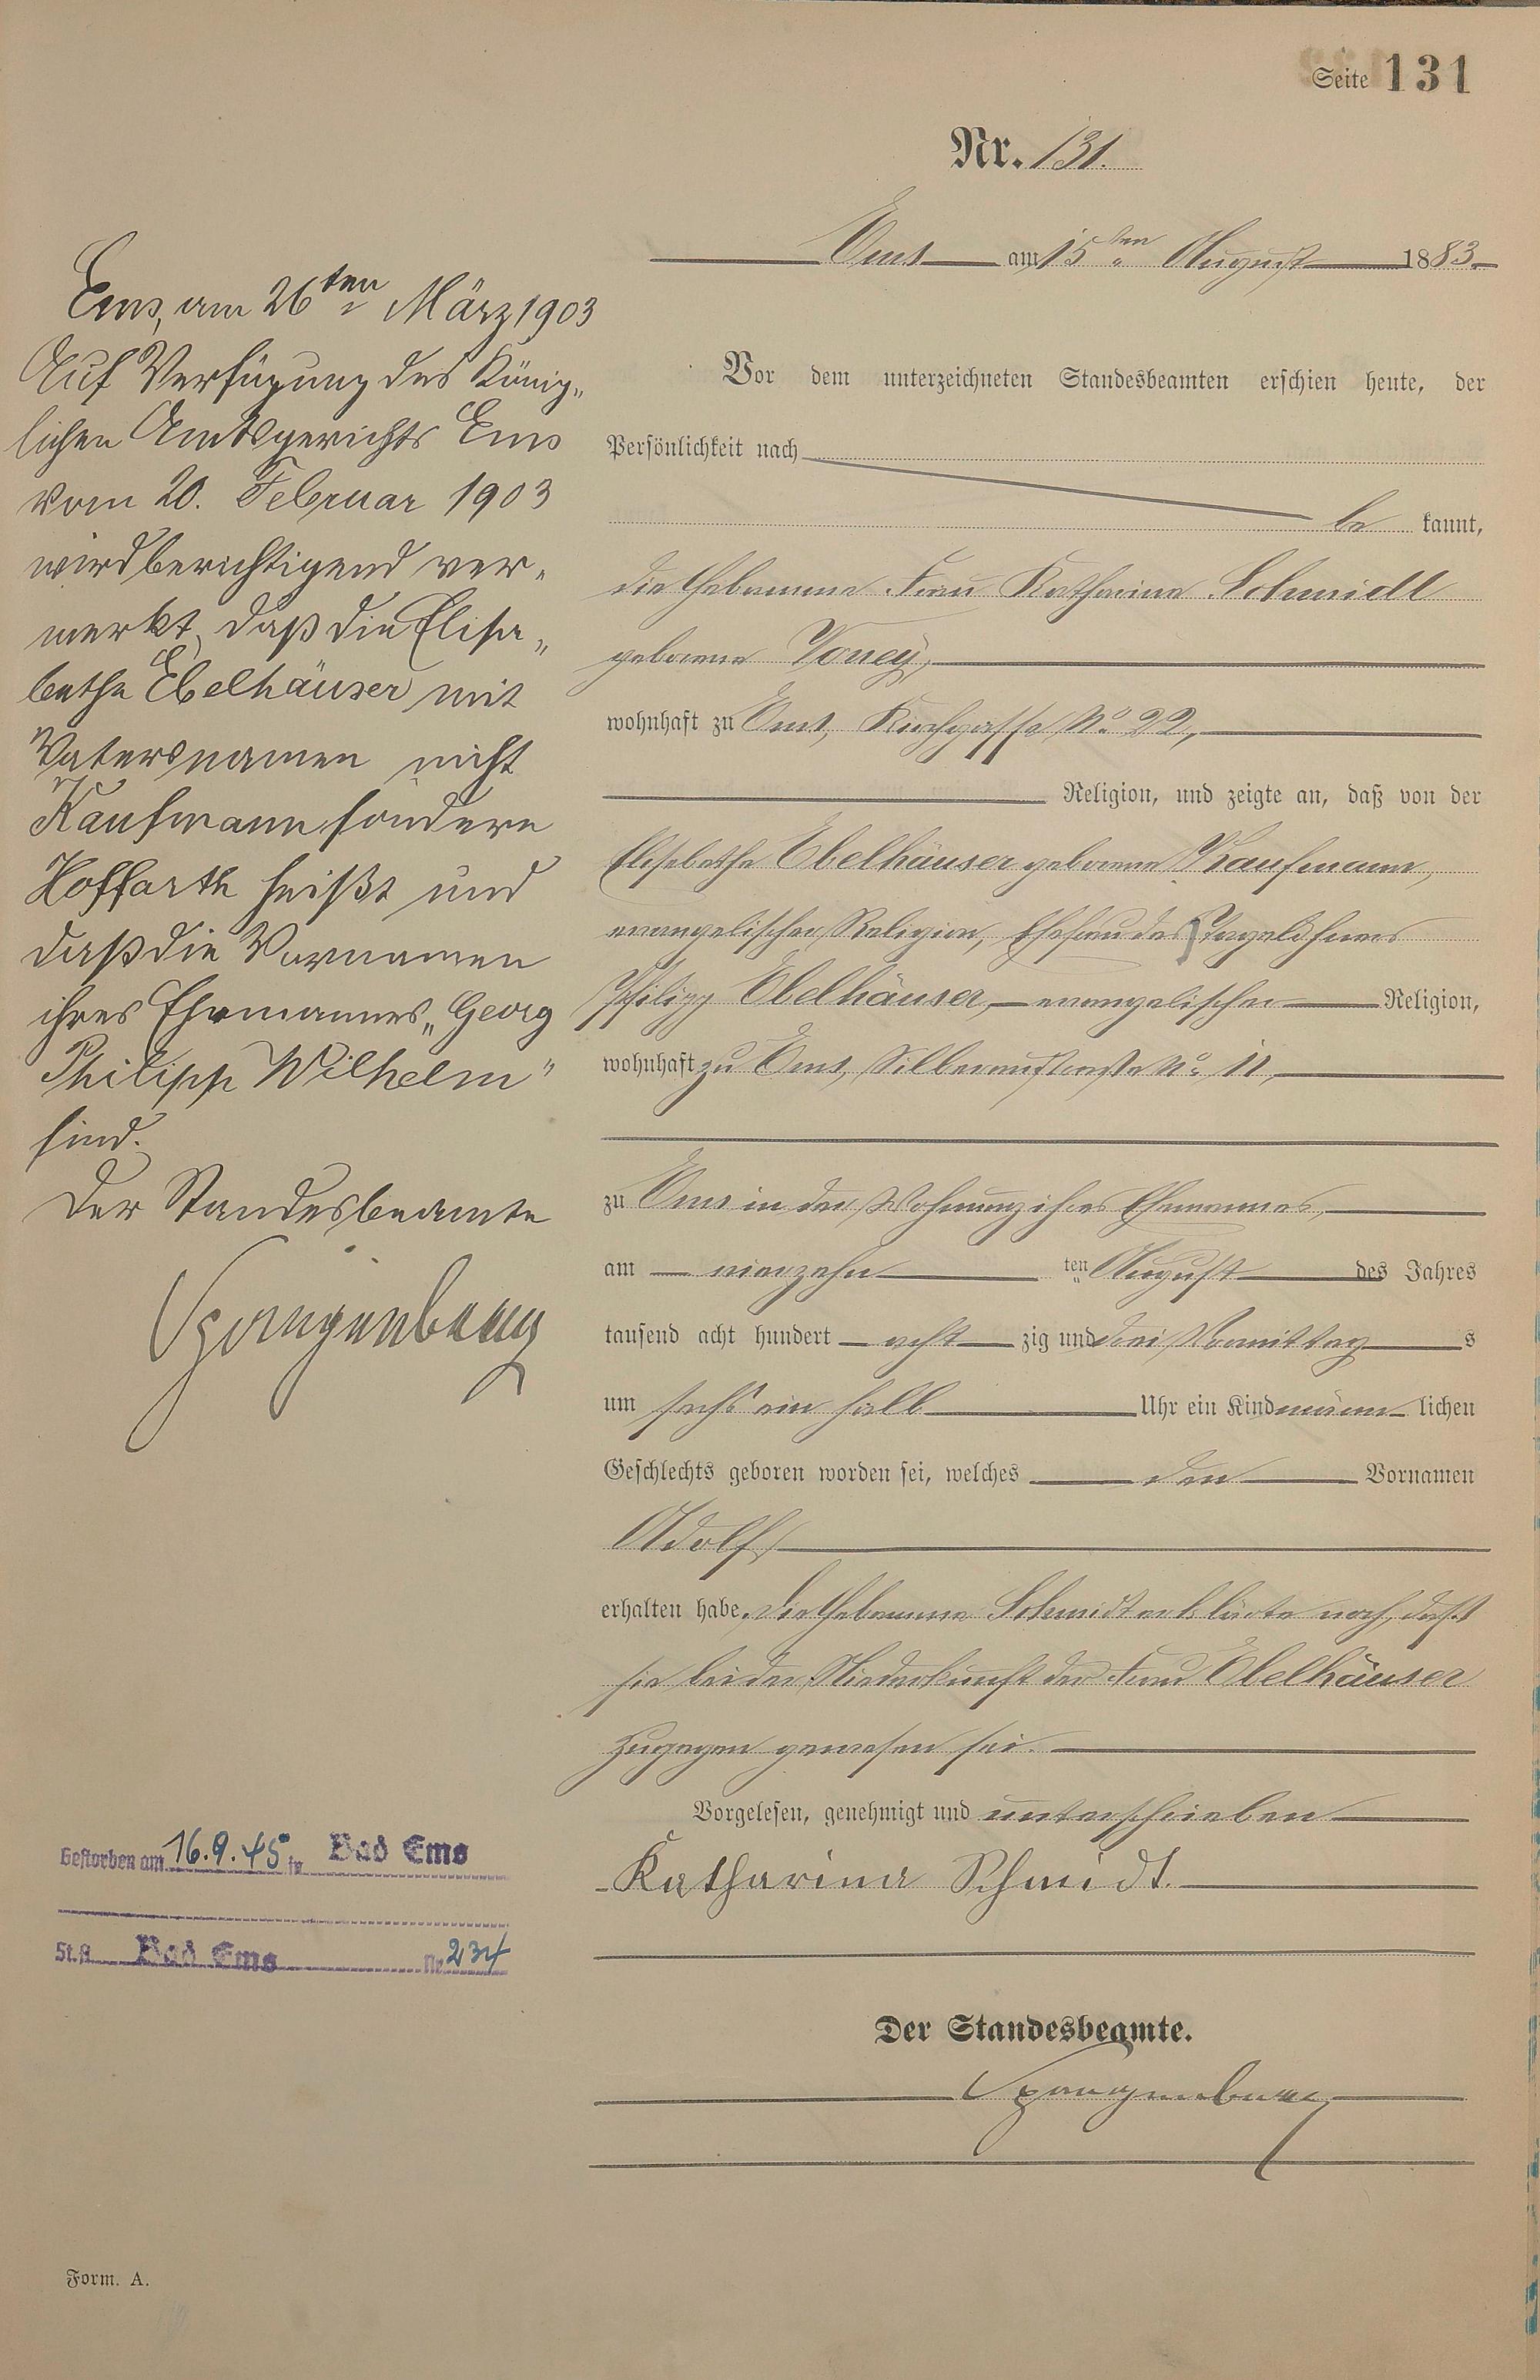 Seite 131
Nr. 131.
Ems am 15ten August 1883.
Vor dem unterzeichneten Standesbeamten erschien heute, der
Persönlichkeit nach
be kannt,
die Hebamme Frau Katharina Schmidt
geborene
wohnhaft zu Ems, Kirchgasse No. 22,
Religion, und zeigte an, daß von der
Elisabethe Ebelhäuser geborene Kaufmann,
evangelischer Religion, Ehefrau des Tagelöhners
Philipp Ebelhäuser, evangelischer Religion,
wohnhaft zu Ems, Silberaustraße No. 11,
zu Ems in der Wohnung ihres Ehemannes,
am vierzehn ten August des Jahres
tausend acht hundert acht zig und drei Vormittag s
um sechs ein halb Uhr ein Kind männ lichen
Geschlechts geboren worden sei, welches den Vornamen
Adolf
erhalten habe. Die Hebamme Schmidt erklärte noch, daß
sie bei der Niederkunft der Frau Ebelhäuser
zugegen gewesen sei.
Vorgelesen, genehmigt und unterschrieben
Katharina Schmidt.
Der Standesbeamte.
Spangenberg
Ems, am 26ten März 1903
Auf Verfügung des König„
lichen Amtsgerichts Ems
vom 20. Februar 1903
wird berichtigend ver„
merkt, daß die Elisa„
bethe Ebelhäuser mit
Vatersnamen nicht
Kaufmann sondern
Hoffarth heißt und
daß die Vornamen
ihres Ehemannes „Georg
Philipp Wilhelm"
sind.
Der Standesbeamte
Spangenberg
Gestorben am 16.9.45 in Bad Ems
St.A. Bad Ems Nr. 234
Form. A.